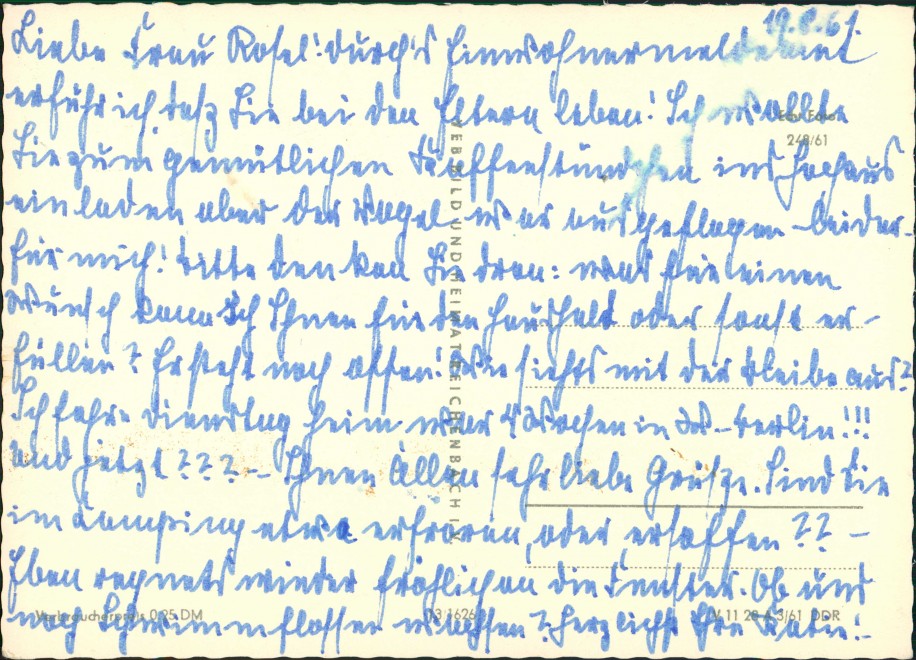 19.8.61.
Liebe Frau Rosel! Durch's Einwohnermeldeamt
erfuhr ich, dasz Sie bei den Eltern leben! Ich wollte
Sie zum gemütlichen Kaffeestündchen ins Hochaus
einladen aber der Vogel war ausgeflogen – leider
für mich! Bitte denken Sie dran: was für einen
Wunsch kann ich Ihnen für den Haushalt oder sonst er-
füllen? Er steht noch offen! Wie siehts mit der Bleibe aus?
Ich fahre Dienstag heim war 4 Wochen in W.-Berlin!!!
Und jetzt??? – Ihnen Allen sehr liebe Grüsze. Sind Sie
im Camping etwa erfroren, oder ersoffen?? –
Eben regnets wieder fröhlich an die Fenster. Ob uns
noch Schwimmflossen wachsen? Herzlichst Ihre Katie!-
Echt Foto
248/61
VEB BILD UND HEIMAT REICHENBACH I. V.
Verbraucherpreis 0,25 DM
03 1626
V 11 28 A 3/61 DDR